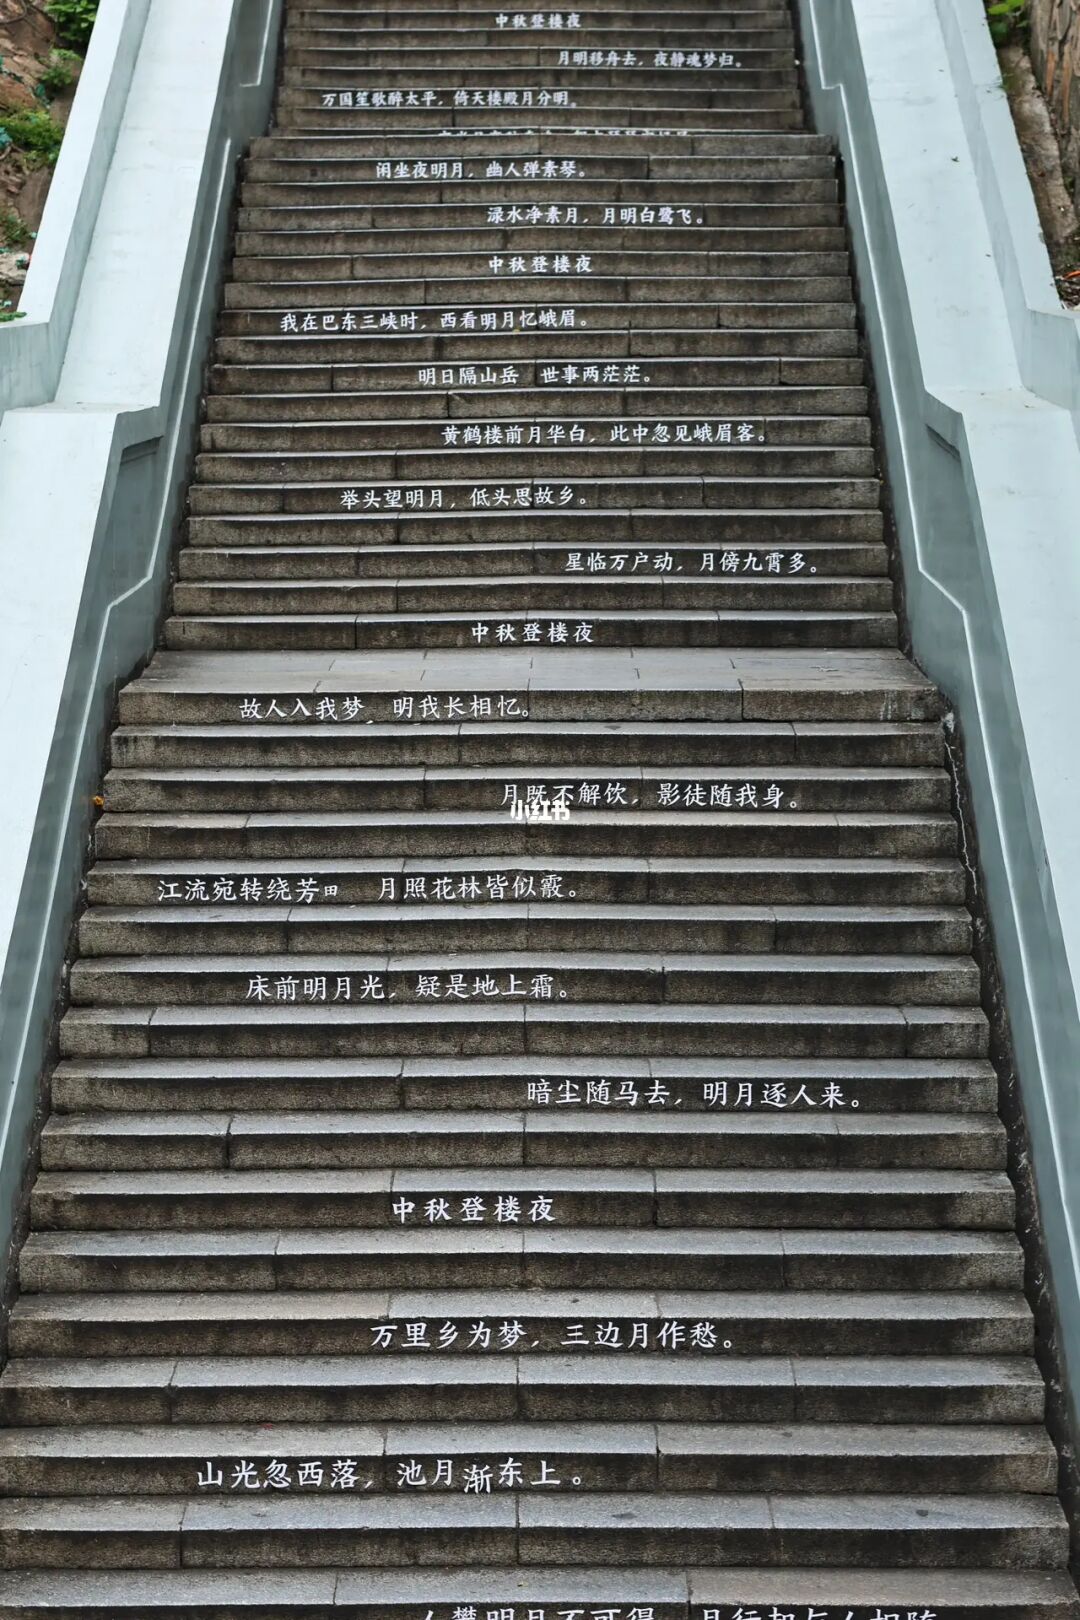 中秋登楼夜
月明移舟去，夜静魂梦归。
万国笙歌醉太平，倚天楼殿月分明。
闲坐夜明月，幽人弹素琴。
渌水净素月，月明白鹭飞。
中秋登楼夜
我在巴东三峡时，西看明月忆峨眉。
明日隔山岳 世事两茫茫。
黄鹤楼前月华白，此中忽见峨眉客。
举头望明月，低头思故乡。
星临万户动，月傍九霄多。
中秋登楼夜
故人入我梦，明我长相忆。
月既不解饮，影徒随我身。
小红书
江流宛转绕芳田 月照花林皆似霰。
床前明月光，疑是地上霜。
暗尘随马去，明月逐人来。
中秋登楼夜
万里乡为梦，三边月作愁。
山光忽西落，池月渐东上。
人攀明月不可得，月行却与人相随